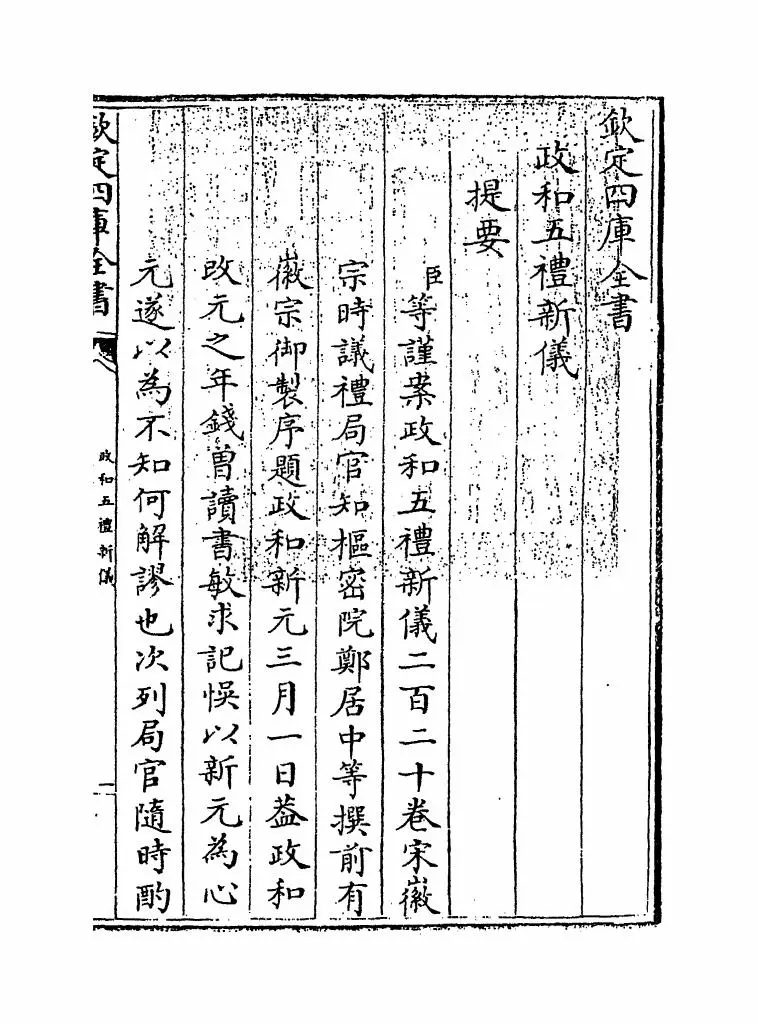 欽定四庫全書
政和五禮新儀
提要
臣等謹案政和五禮新儀二百二十卷宋徽
宗時議禮局官知樞密院鄭居中等撰前有
徽宗御製序題政和新元三月一日葢政和
改元之年錢曽讀書敏求記悞以新元為心
元遂以為不知何解謬也次列局官隨時酌
欽定四庫全書
政和五禮新儀
一